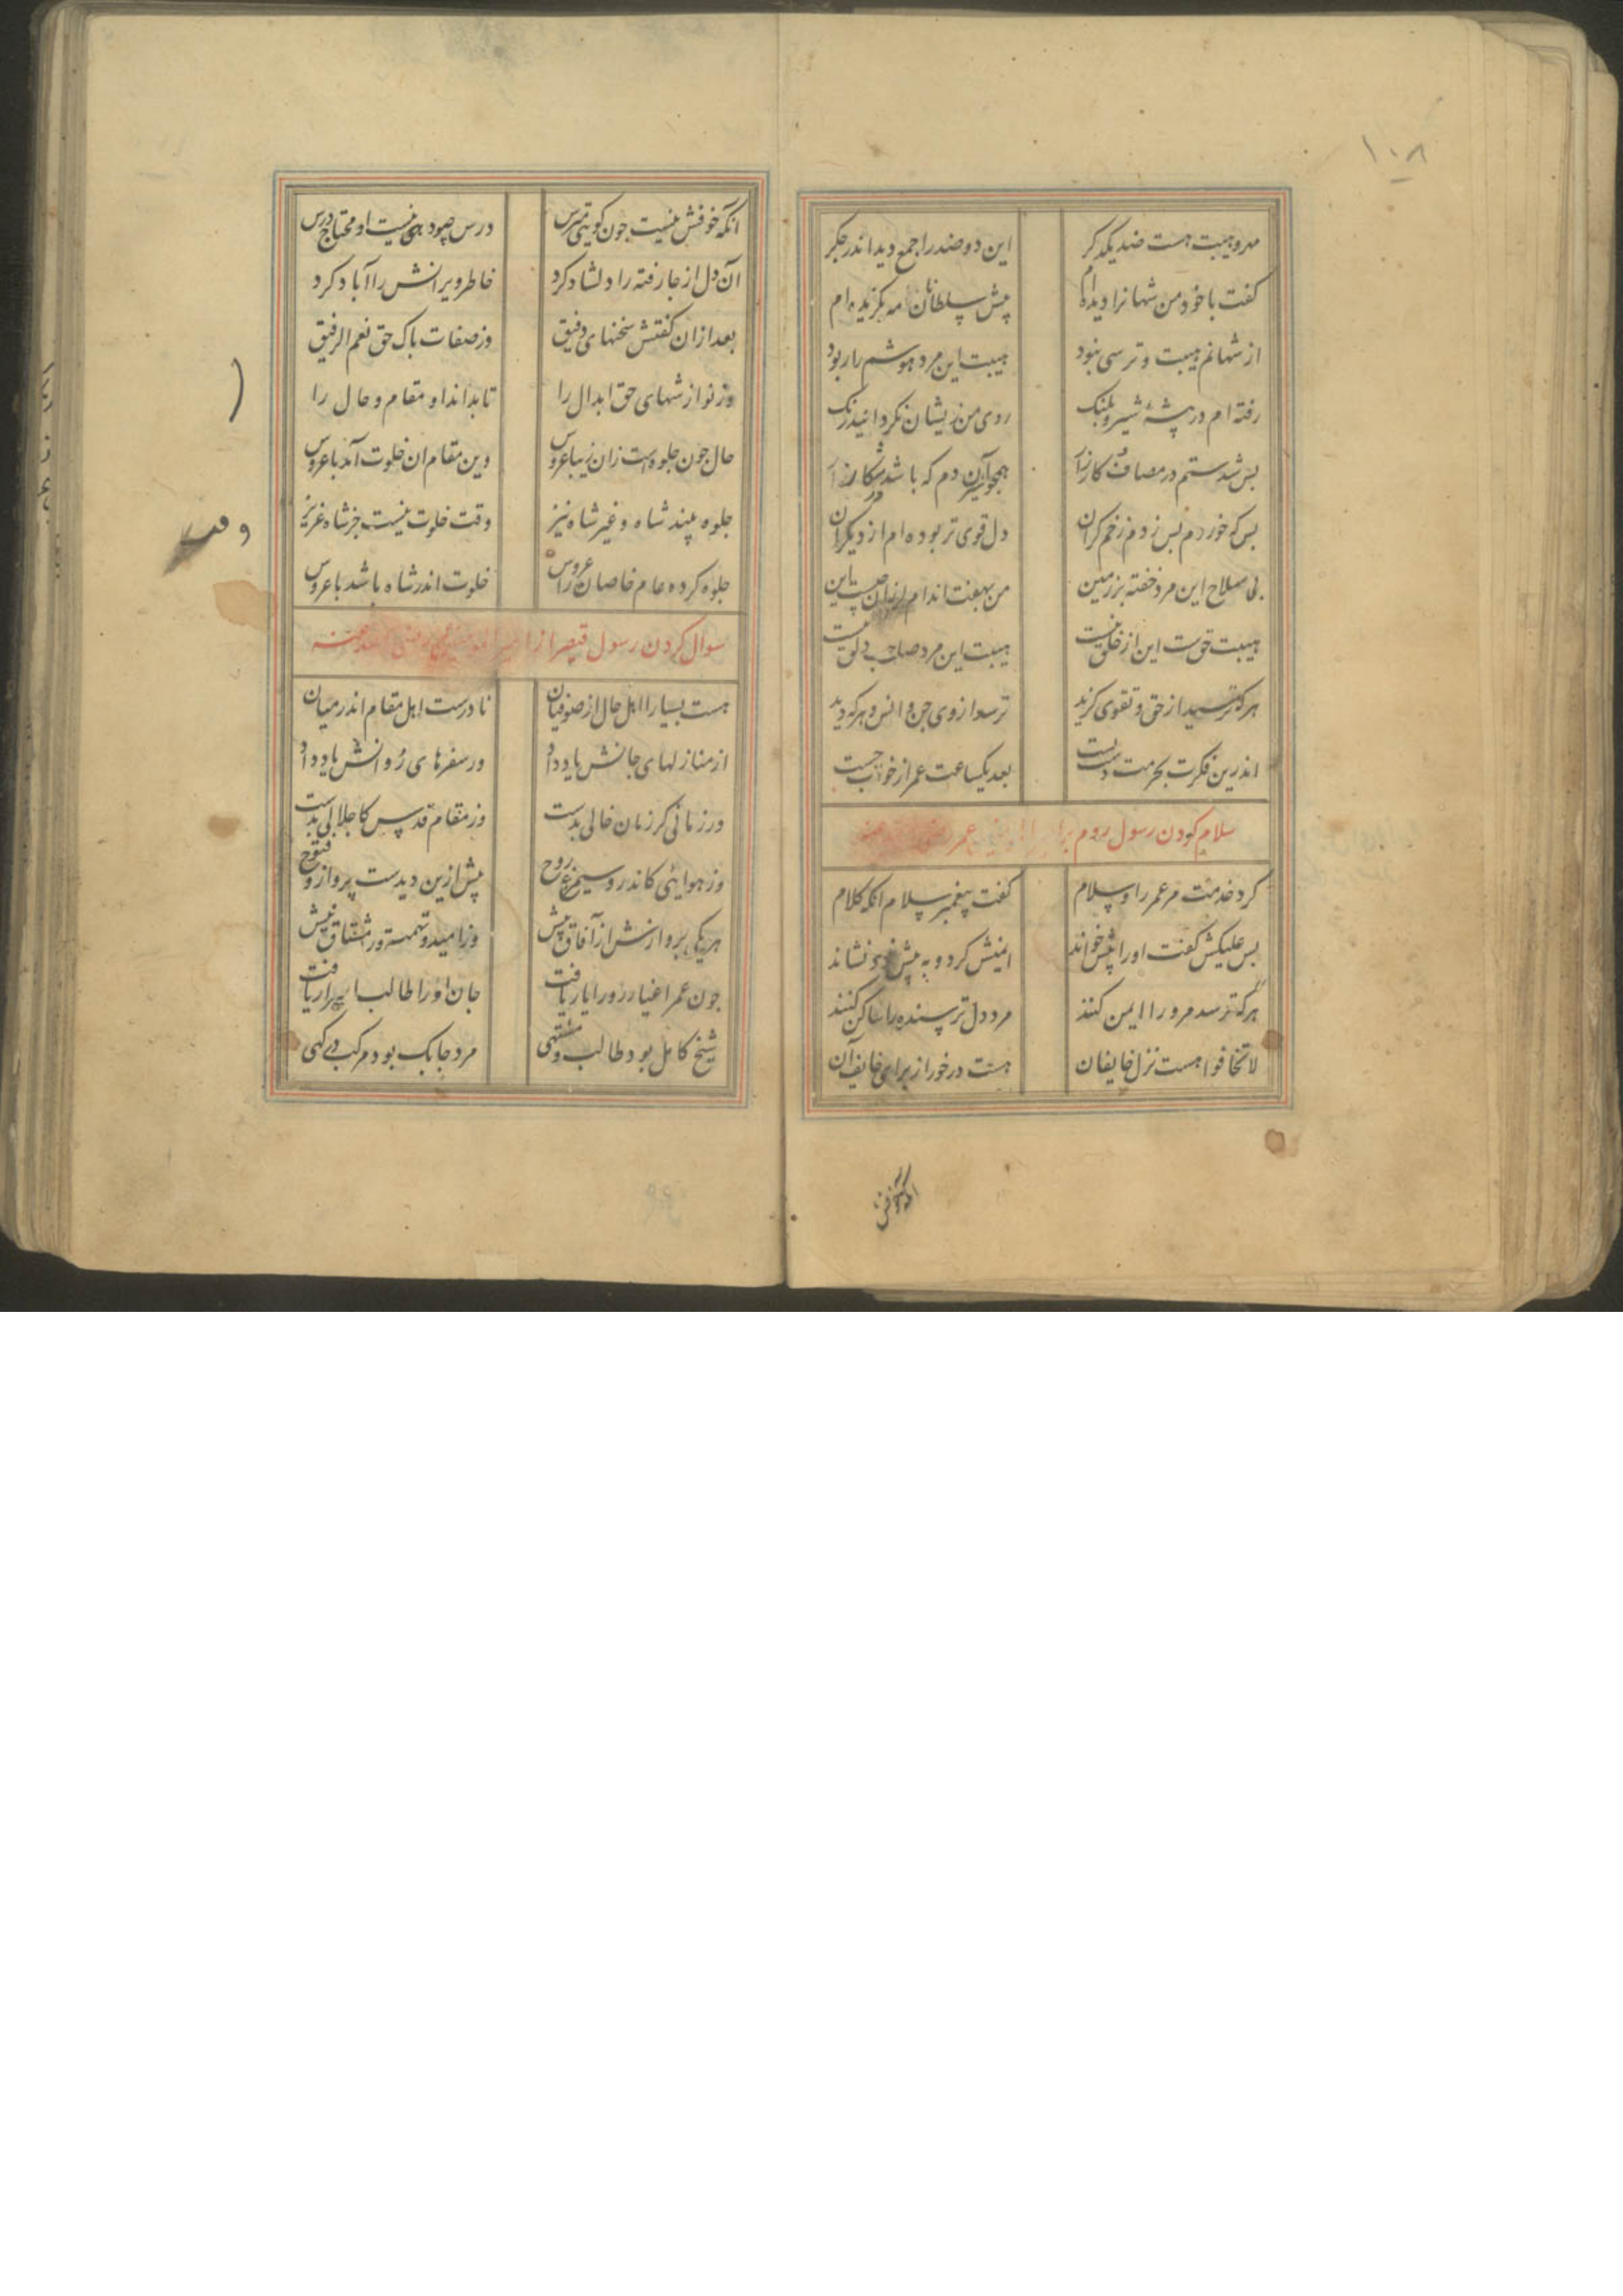 ۱۰۸
مهر و هیبت هست ضد یکدیگر این دو ضد را جمع دید اندر جکر
کفت با خود من شهانرا دیده‌ام پیش سلطانان مه بکزیده‌ام
از شهانم هیبت و ترسی نبود هیبت این مرد هوشم را ربود
رفته‌ام در بیشهٔ شیر و پلنک روی من زیشان نکردانید رنک
بس شدستم در مصاف کارزار همجو شیر آن دم که باشد کار زار
بس که خوردم بس زدم زخم کران دل قوی تر بوده‌ام از دیکران
بی سلاح این مرد خفته بر زمین من بهفت اندام لرزان چیست این
هیبت حق‌ست این از خلق نیست هیبت این مرد صاحب دلق نیست
هرکه ترسید از حق و تقوی کزید ترسد از وی جن و انس و هرکه دید
اندرین فکرت بحرمت دست بست بعد یکساعت عمر از خواب جست
سلام کردن رسول روم بر عمر
کرد خدمت مر عمر را و سلام کفت پیغمبر سلام انکه کلام
بس علیکش کفت او را پیش خواند ایمنش کرد و به پیش خود نشاند
هرکه ترسد مر ورا ایمن کنند مر دل ترسنده را ساکن کنند
لا تخافوا هست نزل خایفان هست در خور از برای خایف آن
انکه خوفش
انکه خوفش نیست جون کویی مترس درس چه دهی نیست او محتاج درس
آن دل از جا رفته را دلشاد کرد خاطر ویرانش را آباد کرد
بعد ازان کفتش سخنهای دقیق وز صفات باک حق نعم الرفیق
وز نوازشهای حق ابدال را تا بداند او مقام و حال را
حال جون جلوه‌ست زان زیبا عروس وین مقام ان خلوت آمد با عروس
جلوه بیند شاه و غیر شاه نیز وقت خلوت نیست جز شاه عزیز
جلوه کرده عام خاصان را عروس خلوت اندر شاه باشد با عروس
سوال کردن رسول قیصر از
هست بسیار اهل حال از صوفیان نادرست اهل مقام اندر میان
از منازلهای جانش یاد داد وز سفرهای روانش یاد داد
وز زمانی کز زمان خالی بدست وز مقام قدس کاجلالی بدست
وز هوایی کاندرو سیمرغ روح پیش ازین دیدست پرواز و فتوح
هر یکی پروازش از آفاق بیش وز امید و نهمت مشتاق بیش
جون عمر اغیار رو را یار یافت جان او را طالب اسرار یافت
شیخ کامل بود و طالب مشتهی مرد جابک بود و مرکب درکهی